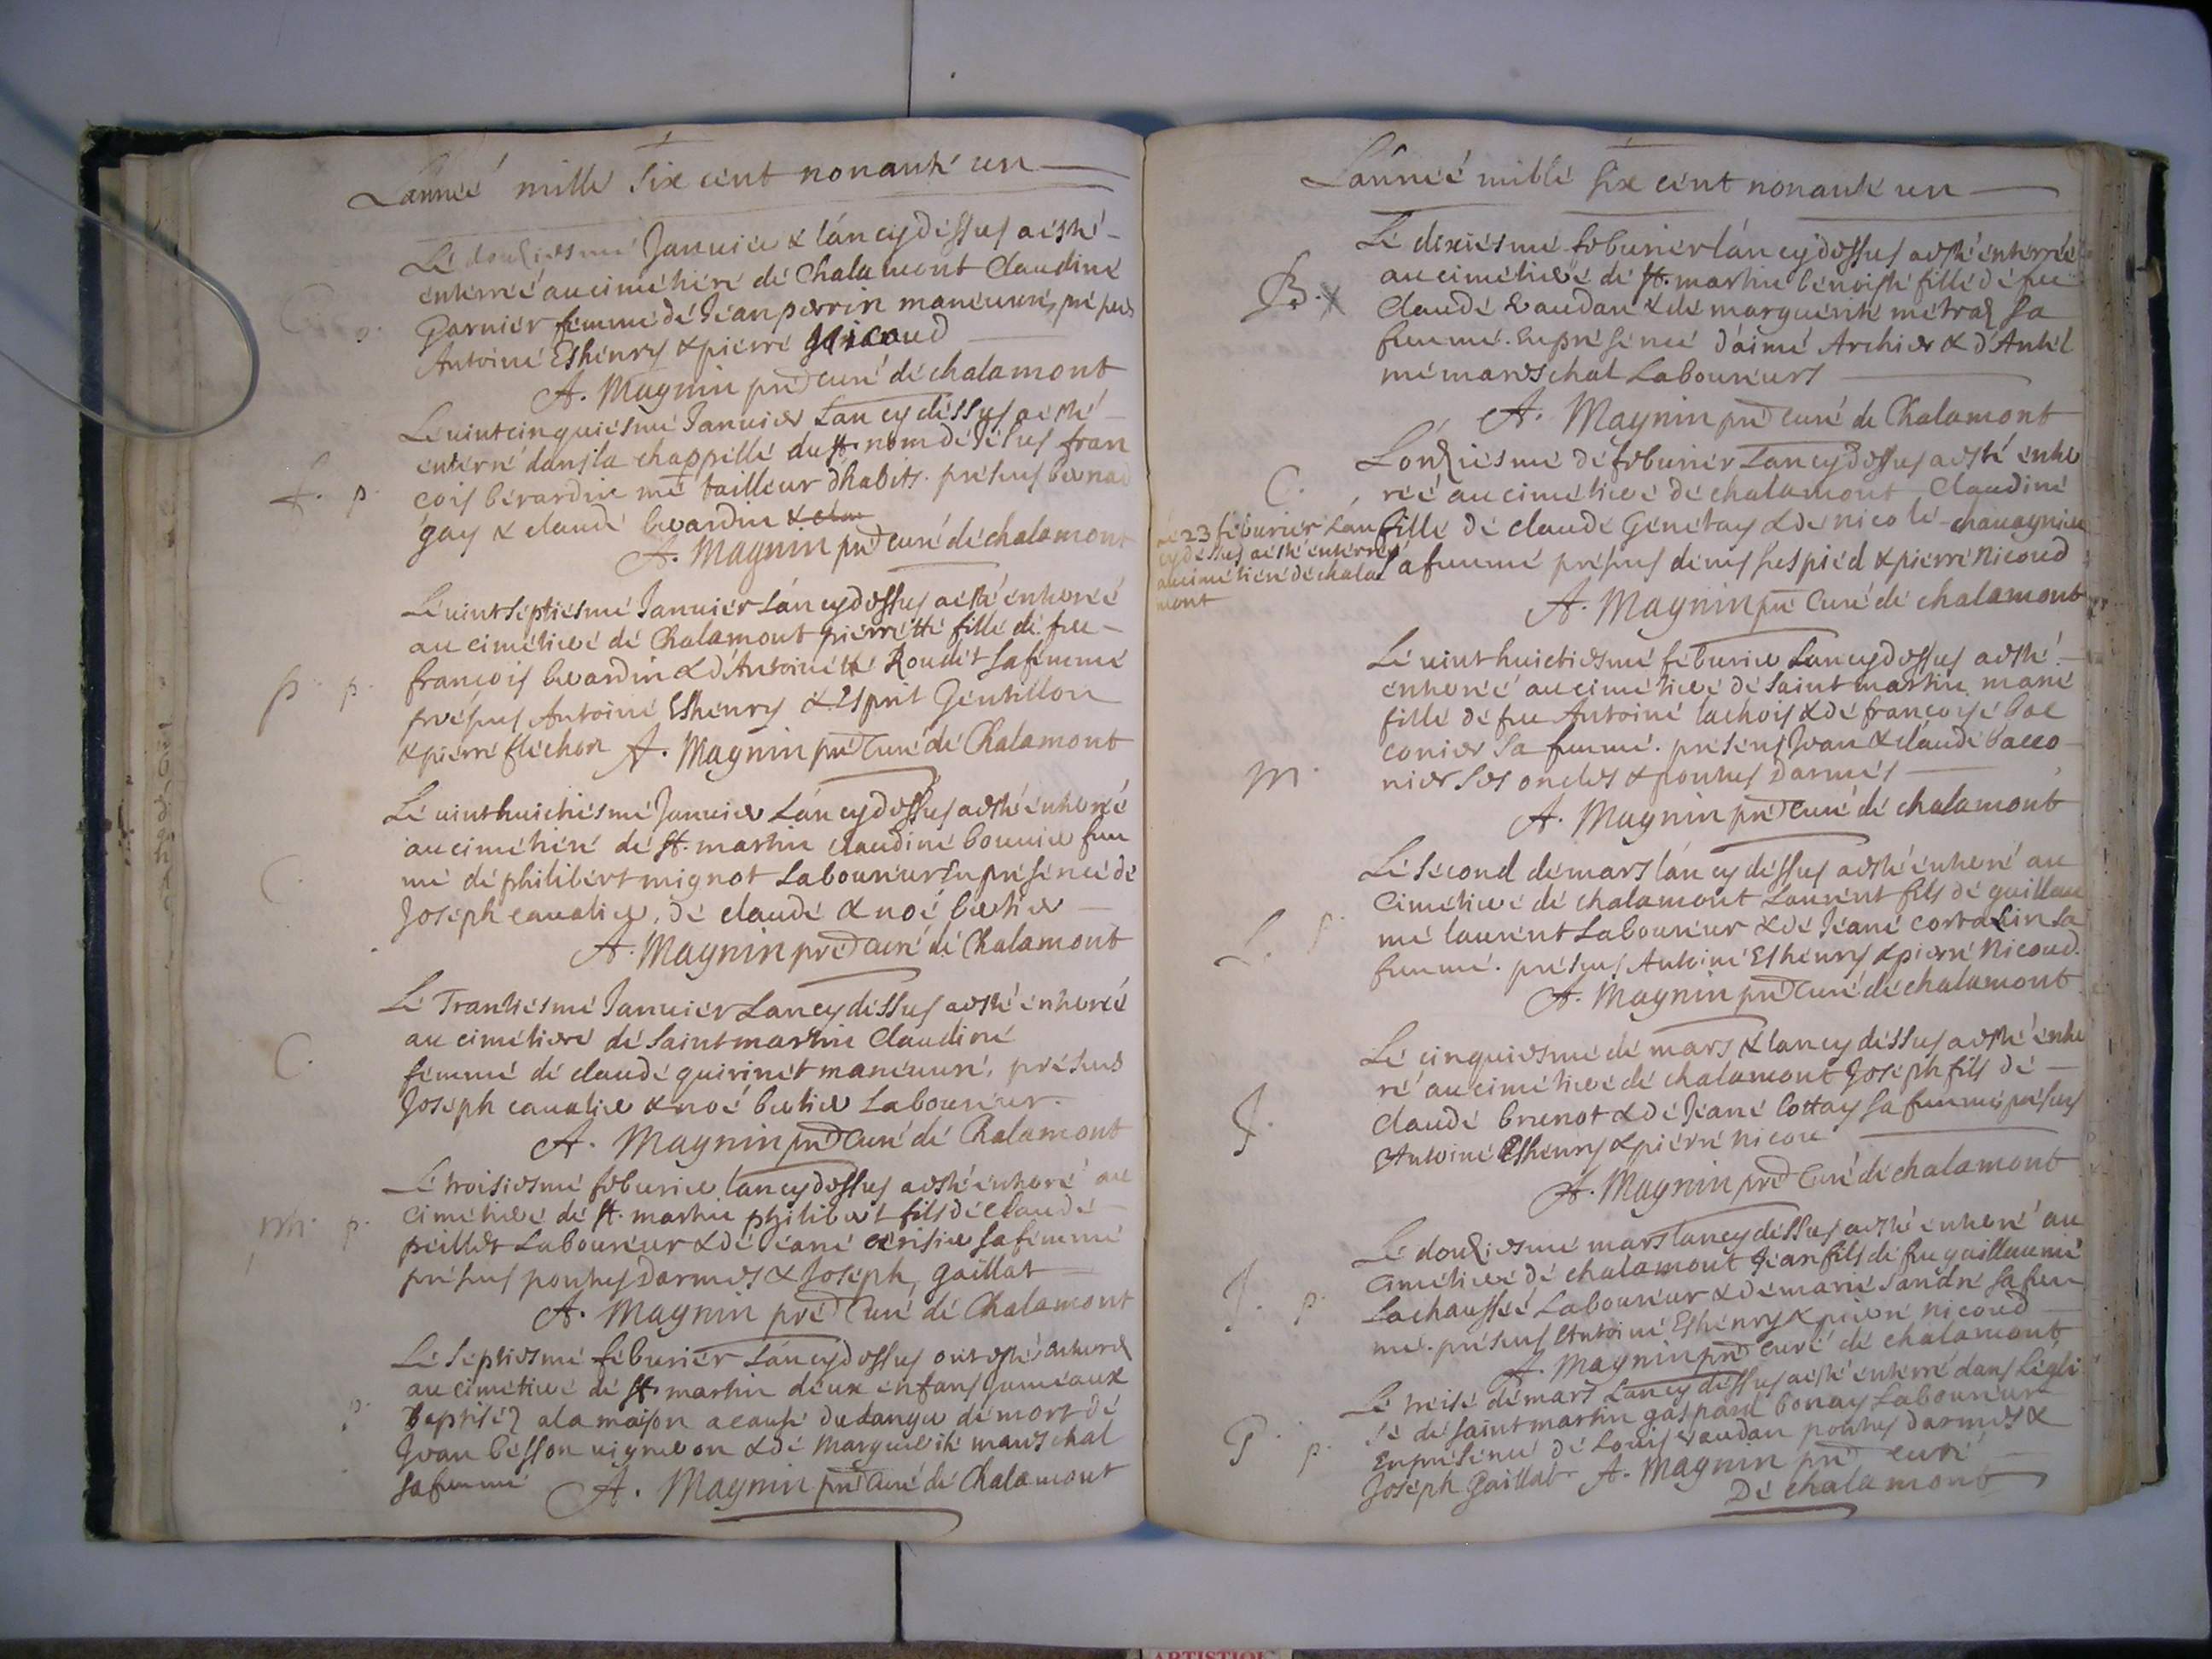 Lannéé mille six cent nonanté un
Lé douziesmé Januier & lán cydéssus aésté
enterréé au cimétiéré dé Chalamont Claudiné
Garniér femmé dé Jéan perrin manéuuré, présens
Antoiné Ethénry & piérré Nicoud
A. Magnin pré curé dé chalamont
Lé uint cinquiésmé Januier Lan cy déssus aésté
enterré dans la chappéllé du st. nom dé Jésus fran
cois bérardin mé tailleur dhabits. présens bernard
gay & claudé berardin
A. Magnin pré curé dé chalamont
Lé uint séptiésmé Januiér Lán cydessus aésté entérréé
au cimétieré dé Chalamont piérrétté fillé dé feu
francois berardin & d'Antoinétté Roudét sa femmé
présens Antoiné Ethénry & Esprit Géntillon
& piérré fléchon A. Magnin pré Curé dé Chalamont
Lé uint huictiésmé Januier Lán cydessus aésté entérréé
au cimétiéré dé st. martin claudiné bouuier fem
mé dé philibért mignot Labouréur En présénce dé
Joséph caualier, dé claudé & noé bertier
A. Magnin pré curé dé Chalamont
Lé Trantiésmé Januiér Lan cy déssus aésté entérréé
au cimétiéré dé Saint martin Claudiné
fémmé dé claudé quirinét manéuuré, présens
Joséph caualier & noé bertier Labouréur.
A. Magnin pré Curé dé Chalamont
Lé troisiesmé feburier lan cydessus aésté entérré au
cimétieré dé st. martin philibert fils dé Claudé
péillét Labouréur & dé Jéané cérisier sa fémmé
présens ponthus Darmes & Joséph gaillat
A. Magnin pré Curé dé Chalamont
Lé Séptiésmé féburiér Lán cydessus ont esté enterrez
au cimétieré dé st. martin déux énfans juméaux
Baptiséz a la maison a causé du danger dé mort dé
Jean bésson uigneron & dé Marguerité mareschal
sa femmé A. Magnin pré Curé dé Chalamont
Lánnéé millé six cént nonanté un
Lé dixiésmé féburiér lán cydessus aésté entérréé
au cimétieré dé st. martin bénoisté fillé dé feu
B.
Claudé Vaudan & dé marguérité métral sa
femmé. En présénce d'aimé Archier & d'Antél
mé mareschal Labouréurs
A. Magnin pré curé dé Chalamont
Lonziésmé dé féburiér Lan cydessus aésté enter
C.
réé au cimétieré dé chalamont Claudiné
fillé dé claudé Génétay & dé nicolé chauagnieu
sa femmé présens dénis Géspiéd & piérré Nicoud
Lé 23 féburiér Lan
cy déssus aésté énterréé
au cimétiéré dé chala
mont
A. Magnin pré Curé dé chalamont
Lé uint huictiesmé féburier Lan cydessus aesté
enterréé au cimétieré dé Saint martin marié
fillé dé feu Antoiné lachois & dé francoisé bac
conier sa femmé. présens Jean & claudé bacco
M.
nier Ses oncles & ponthus Darmés
A. Magnin pré curé dé chalamont
Lé second dé mars lán cy déssus aésté entérré au
Cimétieré dé chalamont Laurént fils dé guillau
mé laurént Labouréur & dé Jéané corralin sa
L.
femmé. présens Antoiné Ethénry & piérré Nicoud.
A. Magnin pré Curé dé chalamont
Lé cinquiesmé dé mars & lan cy déssus aésté énter
ré au cimétieré dé chalamont Joséph fils dé
J.
Claudé brunot & dé Jéané Cottay sa femmé, présens
Antoiné Ethénry & piérré nicou
A. Magnin pré Curé dé chalamont
Lé douziesmé mars lan cy déssus aésté entérré au
Cimétieré dé chalamont Jéan fils dé feu guillaumé
J. p.
Lachausséé Labouréur & dé marié Sandré sa fem
mé. présens Antoiné Ethénry & piérré nicoud
A. Magnin pré curé dé chalamont
Lé treisé dé mars Lan cy déssus aésté entérré dans Légli
sé dé saint martin gaspard bonay Labouréur
G. p.
En présénce dé Louis Vaudan ponthus darmes &
Joséph Gaillat A. Magnin pré curé
Dé chalamont